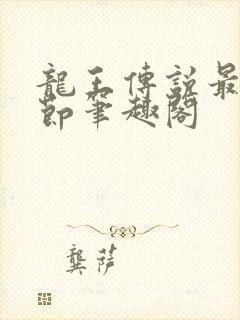 龍王傳說最
節筆趣閣
龔萨